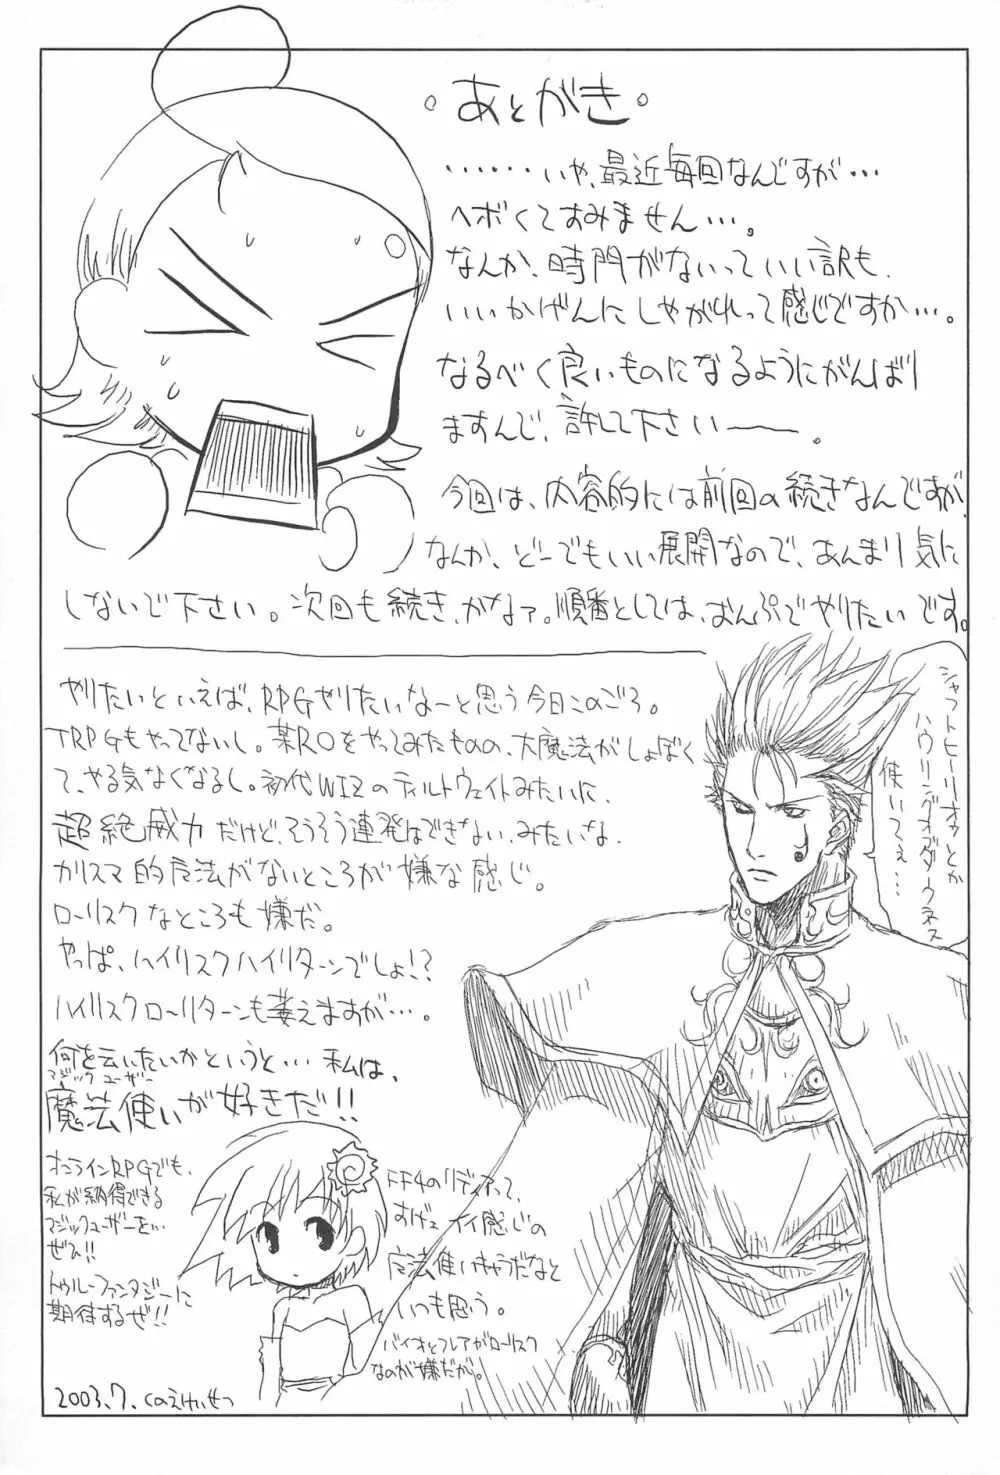 ・あとがき・
・・・・・・いや、最近毎回なんですが・・・
ヘボくてすみません・・・。
なんか、時間がないっていい訳も、
いいかげんにしやがれって感じですか・・・。
なるべく良いものになるようにがんばり
ますんで、許して下さいーー。
今回は、内容的には前回の続きなんですが、
なんか、どーでもいい展開なので、あんまり気に
しないで下さい。次回も続き、かなァ。順番としては、おんぷでやりたいです。
やりたいといえば、RPGやりたいなーと思う今日このごろ。
TRPGもやってないし。某ROをやってみたものの、大魔法がしょぼく
て、やる気なくなるし。初代WIZのティルトウェイトみたいに、
超絶威力だけど、そうそう連発はできない、みたいな
カリスマ的魔法がないところが嫌な感じ。
ローリスクなところも嫌だ。
やっぱ、ハイリスクハイリターンでしょ!?
ハイリスクローリターンも萎えますが・・・。
何を云いたいかというと・・・私は、
マジックユーザー
魔法使いが好きだ!!
シャフトヒーリオゥとか
ハウリングオダーウネス
使いてぇ・・・
オンラインRPGでも、
私が納得できる
マジックユーザーを・・
ぜひ!!
トゥルーファンタジーに
期待するぜ!!
FF4のリディアって、
すげェイイ感じの
魔法使いキャラだなと
いつも思う。
バイオとフレアがローリスク
なのが嫌だが。
2003.7. このえけいせつ